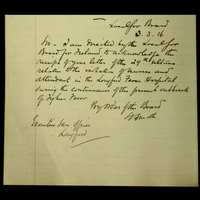 Local Gov Board
3. 3. 16
Sir - I am directed by the Local Gov
Board for Ireland to acknowledge the
receipt of your letter of the 29th ultimo
relative to the retention of nurses and
attendant in the Longford Fever Hospital
during the continuance of the present outbreak
of Typhus Fever
By Order of the Board
Executive San Officer
Longford